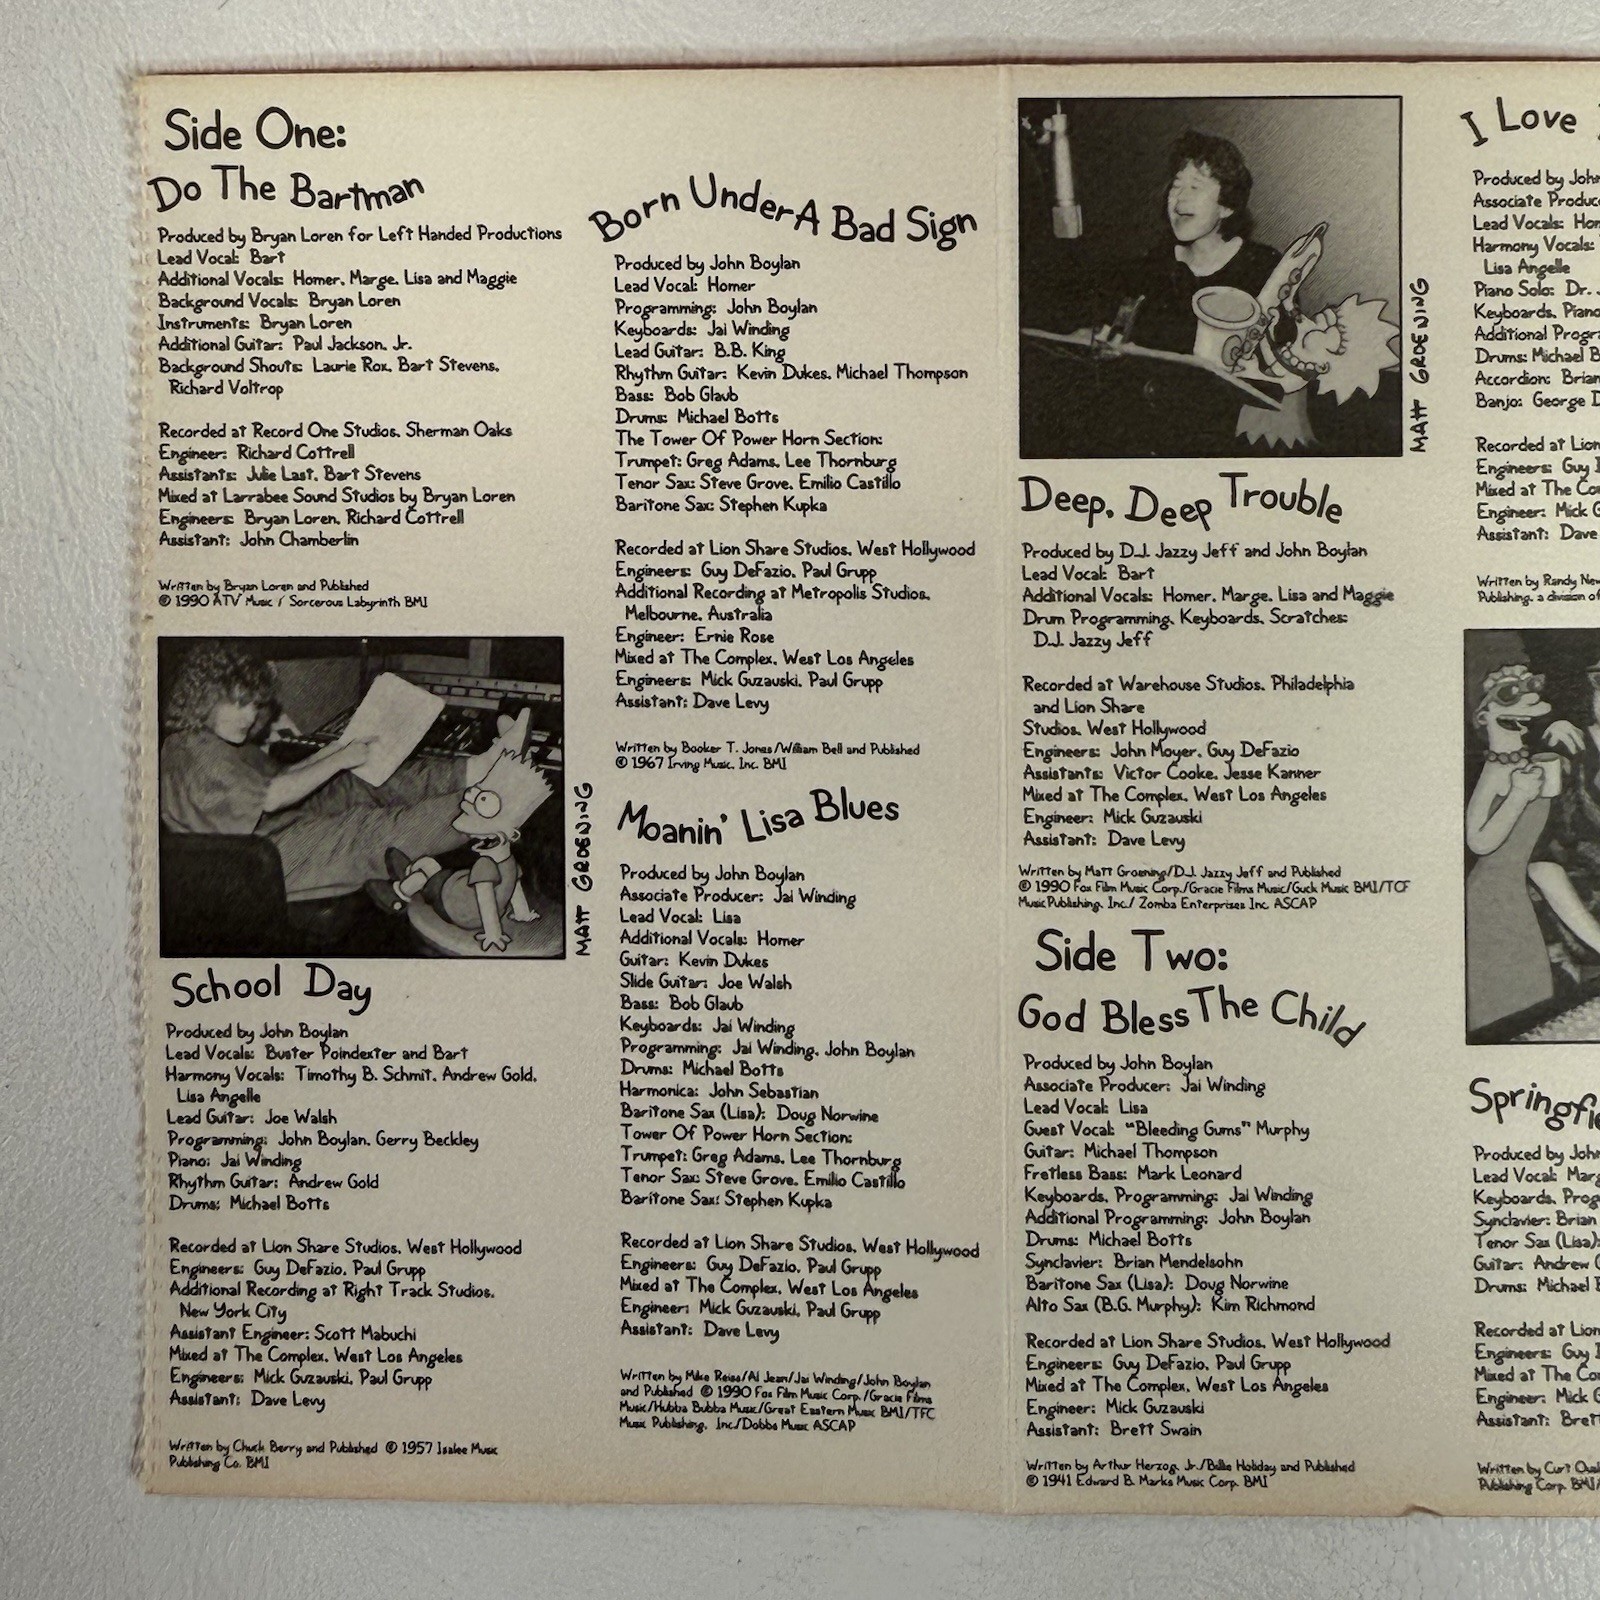 Side One:
Do The Bartman
Produced by Bryan Loren for Left Handed Productions
Lead Vocal: Bart
Additional Vocals: Homer, Marge, Lisa and Maggie
Background Vocals: Bryan Loren
Instruments: Bryan Loren
Additional Guitar: Paul Jackson, Jr.
Background Shouts: Laurie Rox, Bart Stevens,
Richard Voltrop
Recorded at Record One Studios, Sherman Oaks
Engineer: Richard Cottrell
Assistants: Julie Last, Bart Stevens
Mixed at Larrabee Sound Studios by Bryan Loren
Engineers: Bryan Loren, Richard Cottrell
Assistant: John Chamberlin
Written by Bryan Loren and Published
© 1990 ATV Music / Sorcerous Labyrinth BMI
MATT GROENING
School Day
Produced by John Boylan
Lead Vocals: Buster Poindexter and Bart
Harmony Vocals: Timothy B. Schmit, Andrew Gold,
Lisa Angelle
Lead Guitar: Joe Walsh
Programming: John Boylan, Gerry Beckley
Piano: Jai Winding
Rhythm Guitar: Andrew Gold
Drums: Michael Botts
Recorded at Lion Share Studios, West Hollywood
Engineers: Guy DeFazio, Paul Grupp
Additional Recording at Right Track Studios,
New York City
Assistant Engineer: Scott Mabuchi
Mixed at The Complex, West Los Angeles
Engineers: Mick Guzauski, Paul Grupp
Assistant: Dave Levy
Written by Chuck Berry and Published © 1957 Isalee Music
Publishing Co. BMI
Born Under A Bad Sign
Produced by John Boylan
Lead Vocal: Homer
Programming: John Boylan
Keyboards: Jai Winding
Lead Guitar: B.B. King
Rhythm Guitar: Kevin Dukes, Michael Thompson
Bass: Bob Glaub
Drums: Michael Botts
The Tower Of Power Horn Section:
Trumpet: Greg Adams, Lee Thornburg
Tenor Sax: Steve Grove, Emilio Castillo
Baritone Sax: Stephen Kupka
Recorded at Lion Share Studios, West Hollywood
Engineers: Guy DeFazio, Paul Grupp
Additional Recording at Metropolis Studios,
Melbourne, Australia
Engineer: Ernie Rose
Mixed at The Complex, West Los Angeles
Engineers: Mick Guzauski, Paul Grupp
Assistant: Dave Levy
Written by Booker T. Jones/William Bell and Published
© 1967 Irving Music, Inc. BMI
Moanin' Lisa Blues
Produced by John Boylan
Associate Producer: Jai Winding
Lead Vocal: Lisa
Additional Vocals: Homer
Guitar: Kevin Dukes
Slide Guitar: Joe Walsh
Bass: Bob Glaub
Keyboards: Jai Winding
Programming: Jai Winding, John Boylan
Drums: Michael Botts
Harmonica: John Sebastian
Baritone Sax (Lisa): Doug Norwine
Tower Of Power Horn Section:
Trumpet: Greg Adams, Lee Thornburg
Tenor Sax: Steve Grove, Emilio Castillo
Baritone Sax: Stephen Kupka
Recorded at Lion Share Studios, West Hollywood
Engineers: Guy DeFazio, Paul Grupp
Mixed at The Complex, West Los Angeles
Engineer: Mick Guzauski, Paul Grupp
Assistant: Dave Levy
Written by Mike Reiss/Al Jean/Jai Winding/John Boylan
and Published © 1990 Fox Film Music Corp./Gracie Films
Music/Hubba Bubba Music/Great Eastern Music BMI/TFC
Music Publishing, Inc./Dobbs Music ASCAP
MATT GROENING
Deep, Deep Trouble
Produced by D.J. Jazzy Jeff and John Boylan
Lead Vocal: Bart
Additional Vocals: Homer, Marge, Lisa and Maggie
Drum Programming, Keyboards, Scratches:
D.J. Jazzy Jeff
Recorded at Warehouse Studios, Philadelphia
and Lion Share
Studios, West Hollywood
Engineers: John Moyer, Guy DeFazio
Assistants: Victor Cooke, Jesse Kanner
Mixed at The Complex, West Los Angeles
Engineer: Mick Guzauski
Assistant: Dave Levy
Written by Matt Groening/D.J. Jazzy Jeff and Published
© 1990 Fox Film Music Corp./Gracie Films Music/Guck Music BMI/TCF
Music Publishing, Inc./ Zomba Enterprises Inc. ASCAP
Side Two:
God Bless The Child
Produced by John Boylan
Associate Producer: Jai Winding
Lead Vocal: Lisa
Guest Vocal: "Bleeding Gums" Murphy
Guitar: Michael Thompson
Fretless Bass: Mark Leonard
Keyboards, Programming: Jai Winding
Additional Programming: John Boylan
Drums: Michael Botts
Synclavier: Brian Mendelsohn
Baritone Sax (Lisa): Doug Norwine
Alto Sax (B.G. Murphy): Kim Richmond
Recorded at Lion Share Studios, West Hollywood
Engineers: Guy DeFazio, Paul Grupp
Mixed at The Complex, West Los Angeles
Engineer: Mick Guzauski
Assistant: Brett Swain
Written by Arthur Herzog, Jr./Billie Holiday and Published
© 1941 Edward B. Marks Music Corp. BMI
I Love
Produced by
Associate
Lead Vocals:
Harmony Vocals:
Lisa Angelle
Piano Solo: Dr.
Keyboards,
Additional
Drums: Michael
Accordion:
Banjo: George
Recorded at Lion
Engineers: Guy
Mixed at The
Engineer: Mick
Assistant: Dave
Written by Randy
Publishing, a division of
Produced by
Lead Vocal:
Keyboards,
Synclavier: Brian
Tenor Sax (Lisa):
Guitar: Andrew
Drums: Michael
Recorded at Lion
Engineers: Guy
Mixed at The
Engineer: Mick
Assistant:
Written by Curt
Publishing Corp.